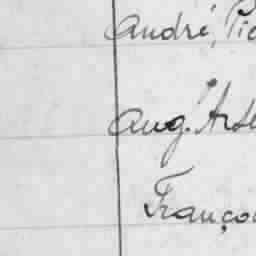 André, Pie
Aug. Arse
Françoi